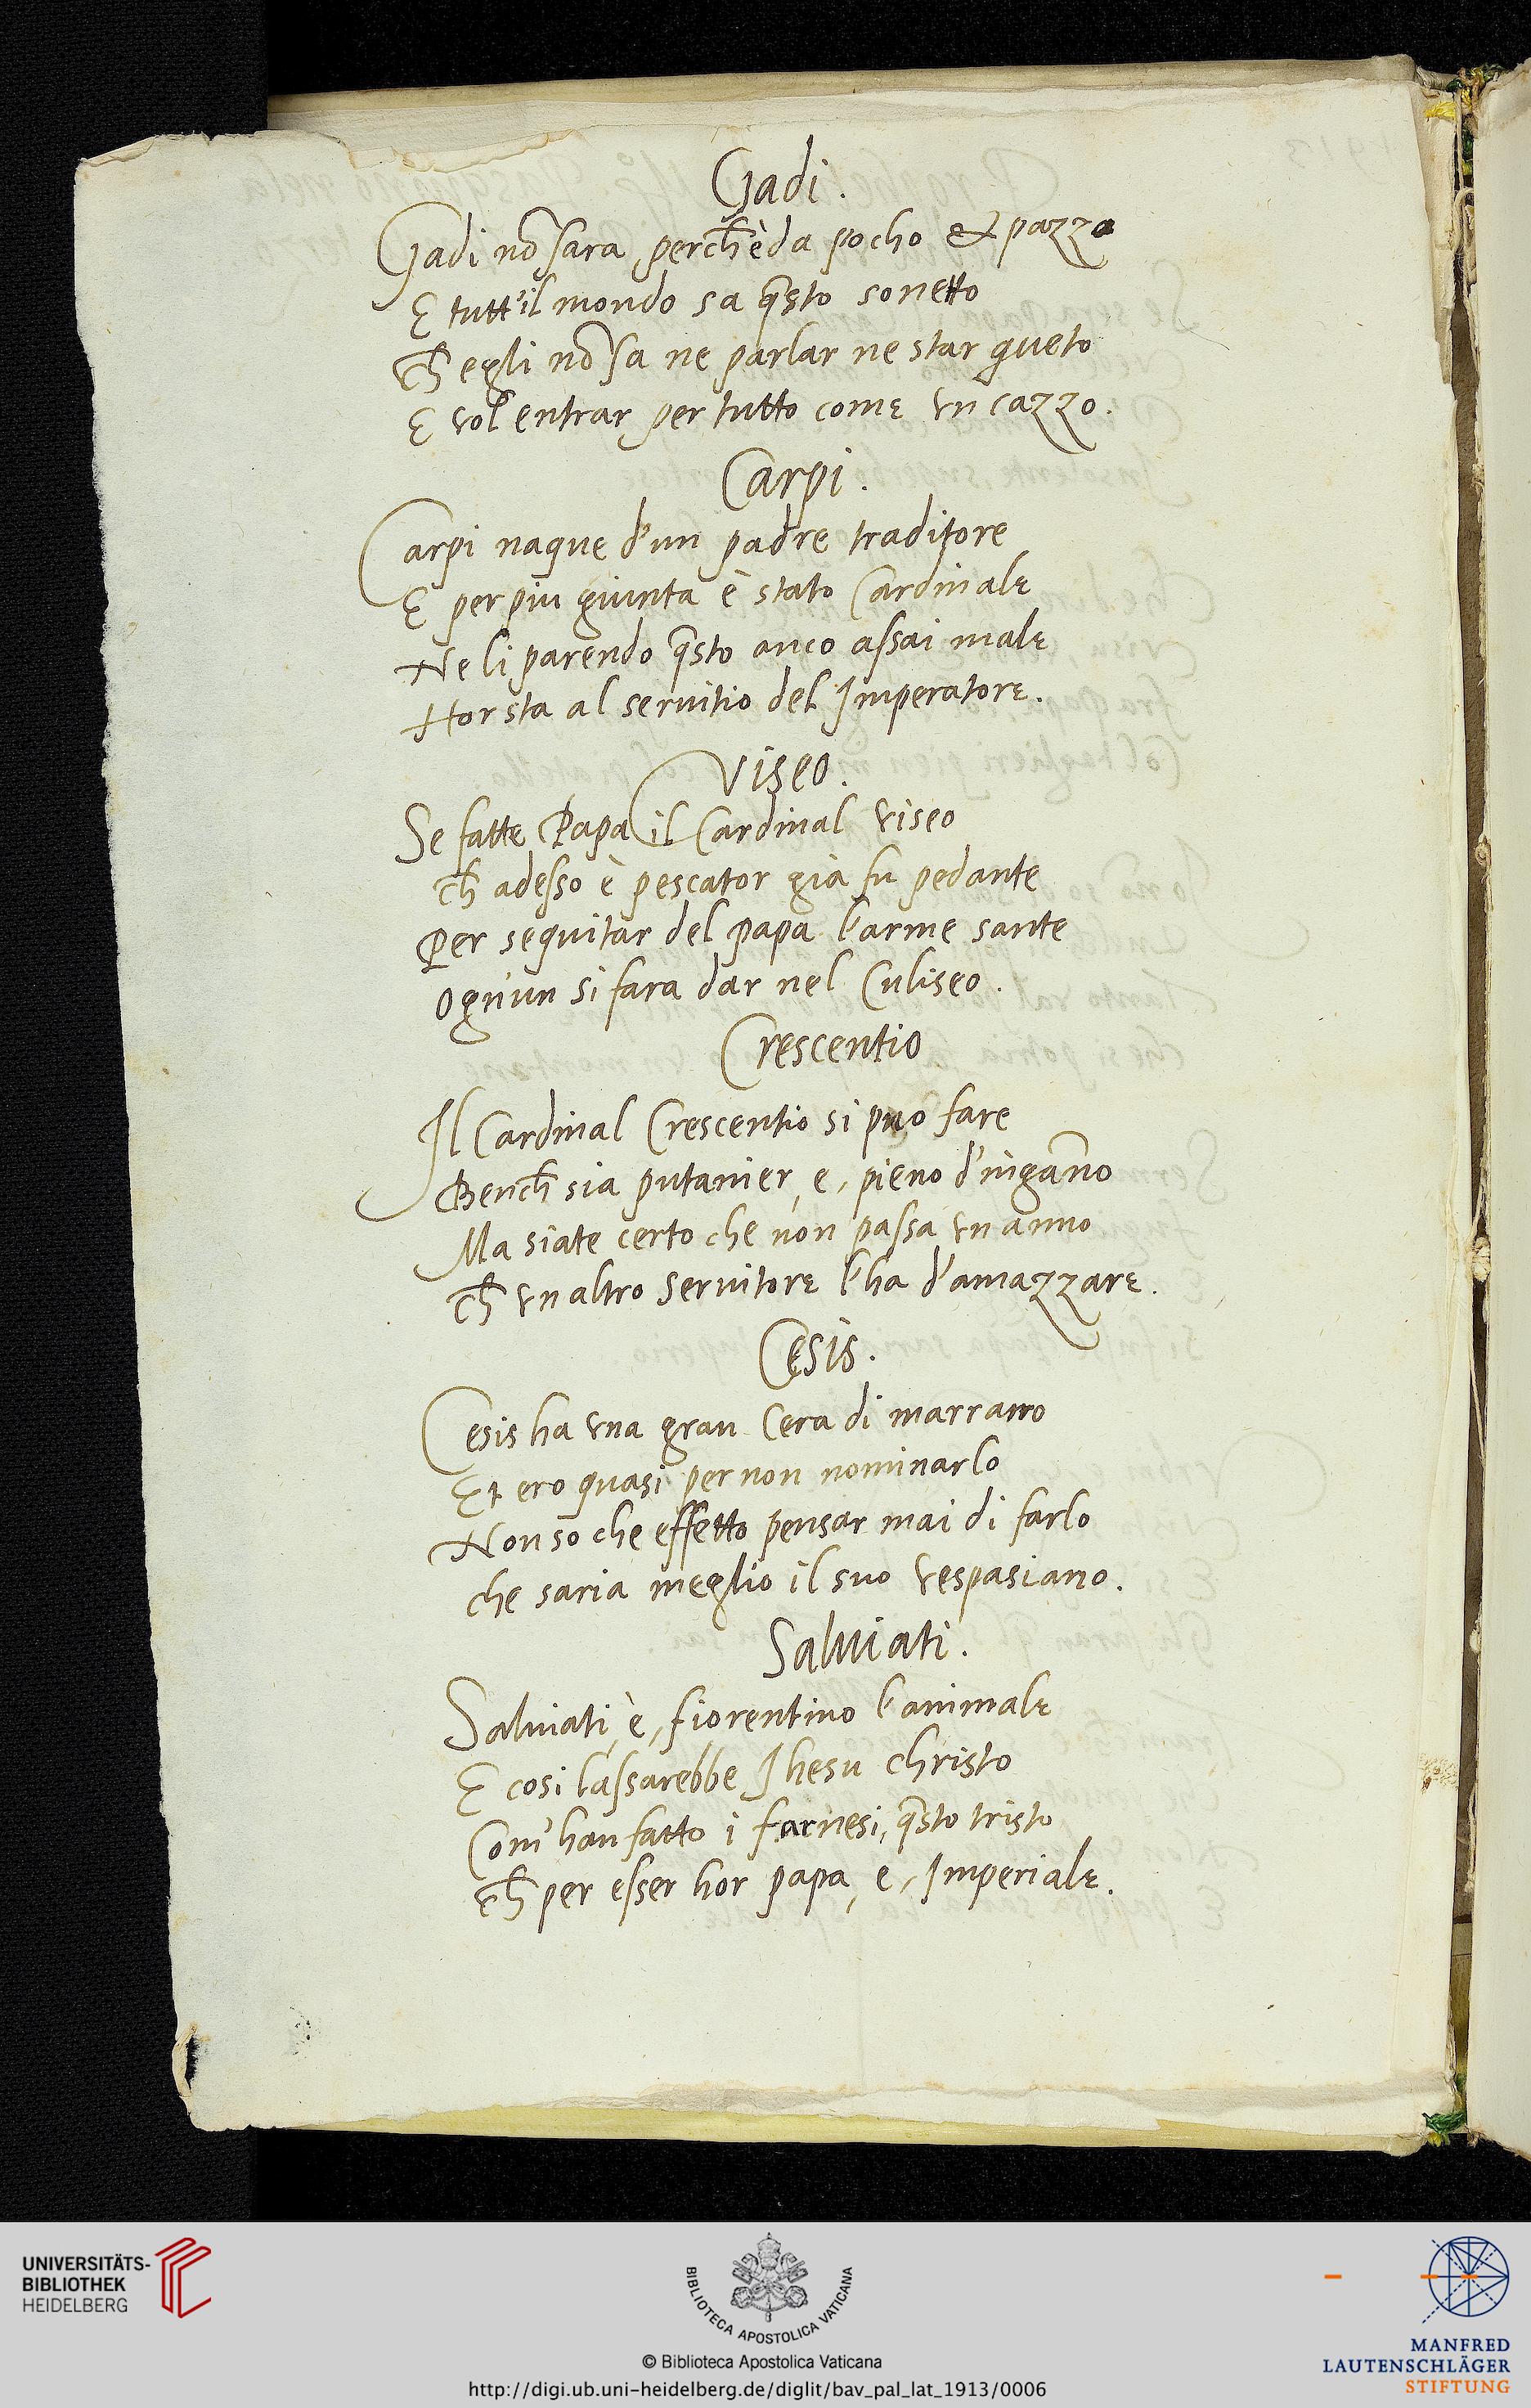 Gadi.
Gadi nō sara perch̄è da pocho & pazzo
E tutt'il mondo sa q̄sto sonetto
Ch̄ egli nō sa ne parlar ne star queto
E vol entrar per tutto come vn cazzo.
Carpi.
Carpi naque d'un padre traditore
E per piu giunta è stato Cardinale
Ne li parendo q̄sto anco assai male
Hor sta al servitio del Imperatore.
Viseo.
Se fatte Papa il Cardinal viseo
Ch̄ adesso è pescator già fu pedante
Per seguitar del papa l'arme sante
Ogn'un si fara dar nel Culiseo.
Crescentio
Il Cardinal Crescentio si puo fare
Bench̄ sia putanier, e, pieno d'ingāno
Ma siate certo che non passa vn anno
Ch̄ vn altro servitore l'ha d'amazzare.
Cesis.
Cesis ha vna gran Cera di marrano
Et ero quasi per non nominarlo
Non so che effetto pensar mai di farlo
che saria meglio il suo vespasiano.
Salviati.
Salviati, è, fiorentino l'animale
E cosi lassarebbe Ihesu christo
Com' han fatto i farnesi, q̄sto tristo
Ch̄ per esser hor papa, e, Imperiale.
UNIVERSITÄTS-
BIBLIOTHEK
HEIDELBERG
BIBLIOTECA APOSTOLICA VATICANA
© Biblioteca Apostolica Vaticana
http://digi.ub.uni-heidelberg.de/diglit/bav_pal_lat_1913/0006
MANFRED
LAUTENSCHLÄGER
STIFTUNG